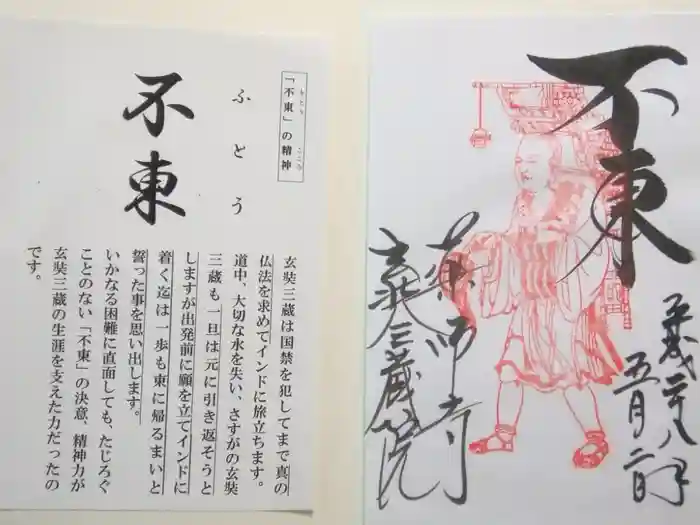 「不東」の精神
もとう
こころ
ふとう
不東
玄奘三蔵は国禁を犯してまで真の
仏法を求めてインドに旅立ちます。
道中、大切な水を失い、さすがの玄奘
三蔵も一旦は元に引き返そうと
しますが出発前に願を立てインドに
着く迄は一歩も東に帰るまいと
誓った事を思い出します。
いかなる困難に直面しても、たじろぐ
ことのない「不東」の決意、精神力が
玄奘三蔵の生涯を支えた力だったの
です。
不東
平成二十八年
五月二日
薬師寺
玄奘三蔵院